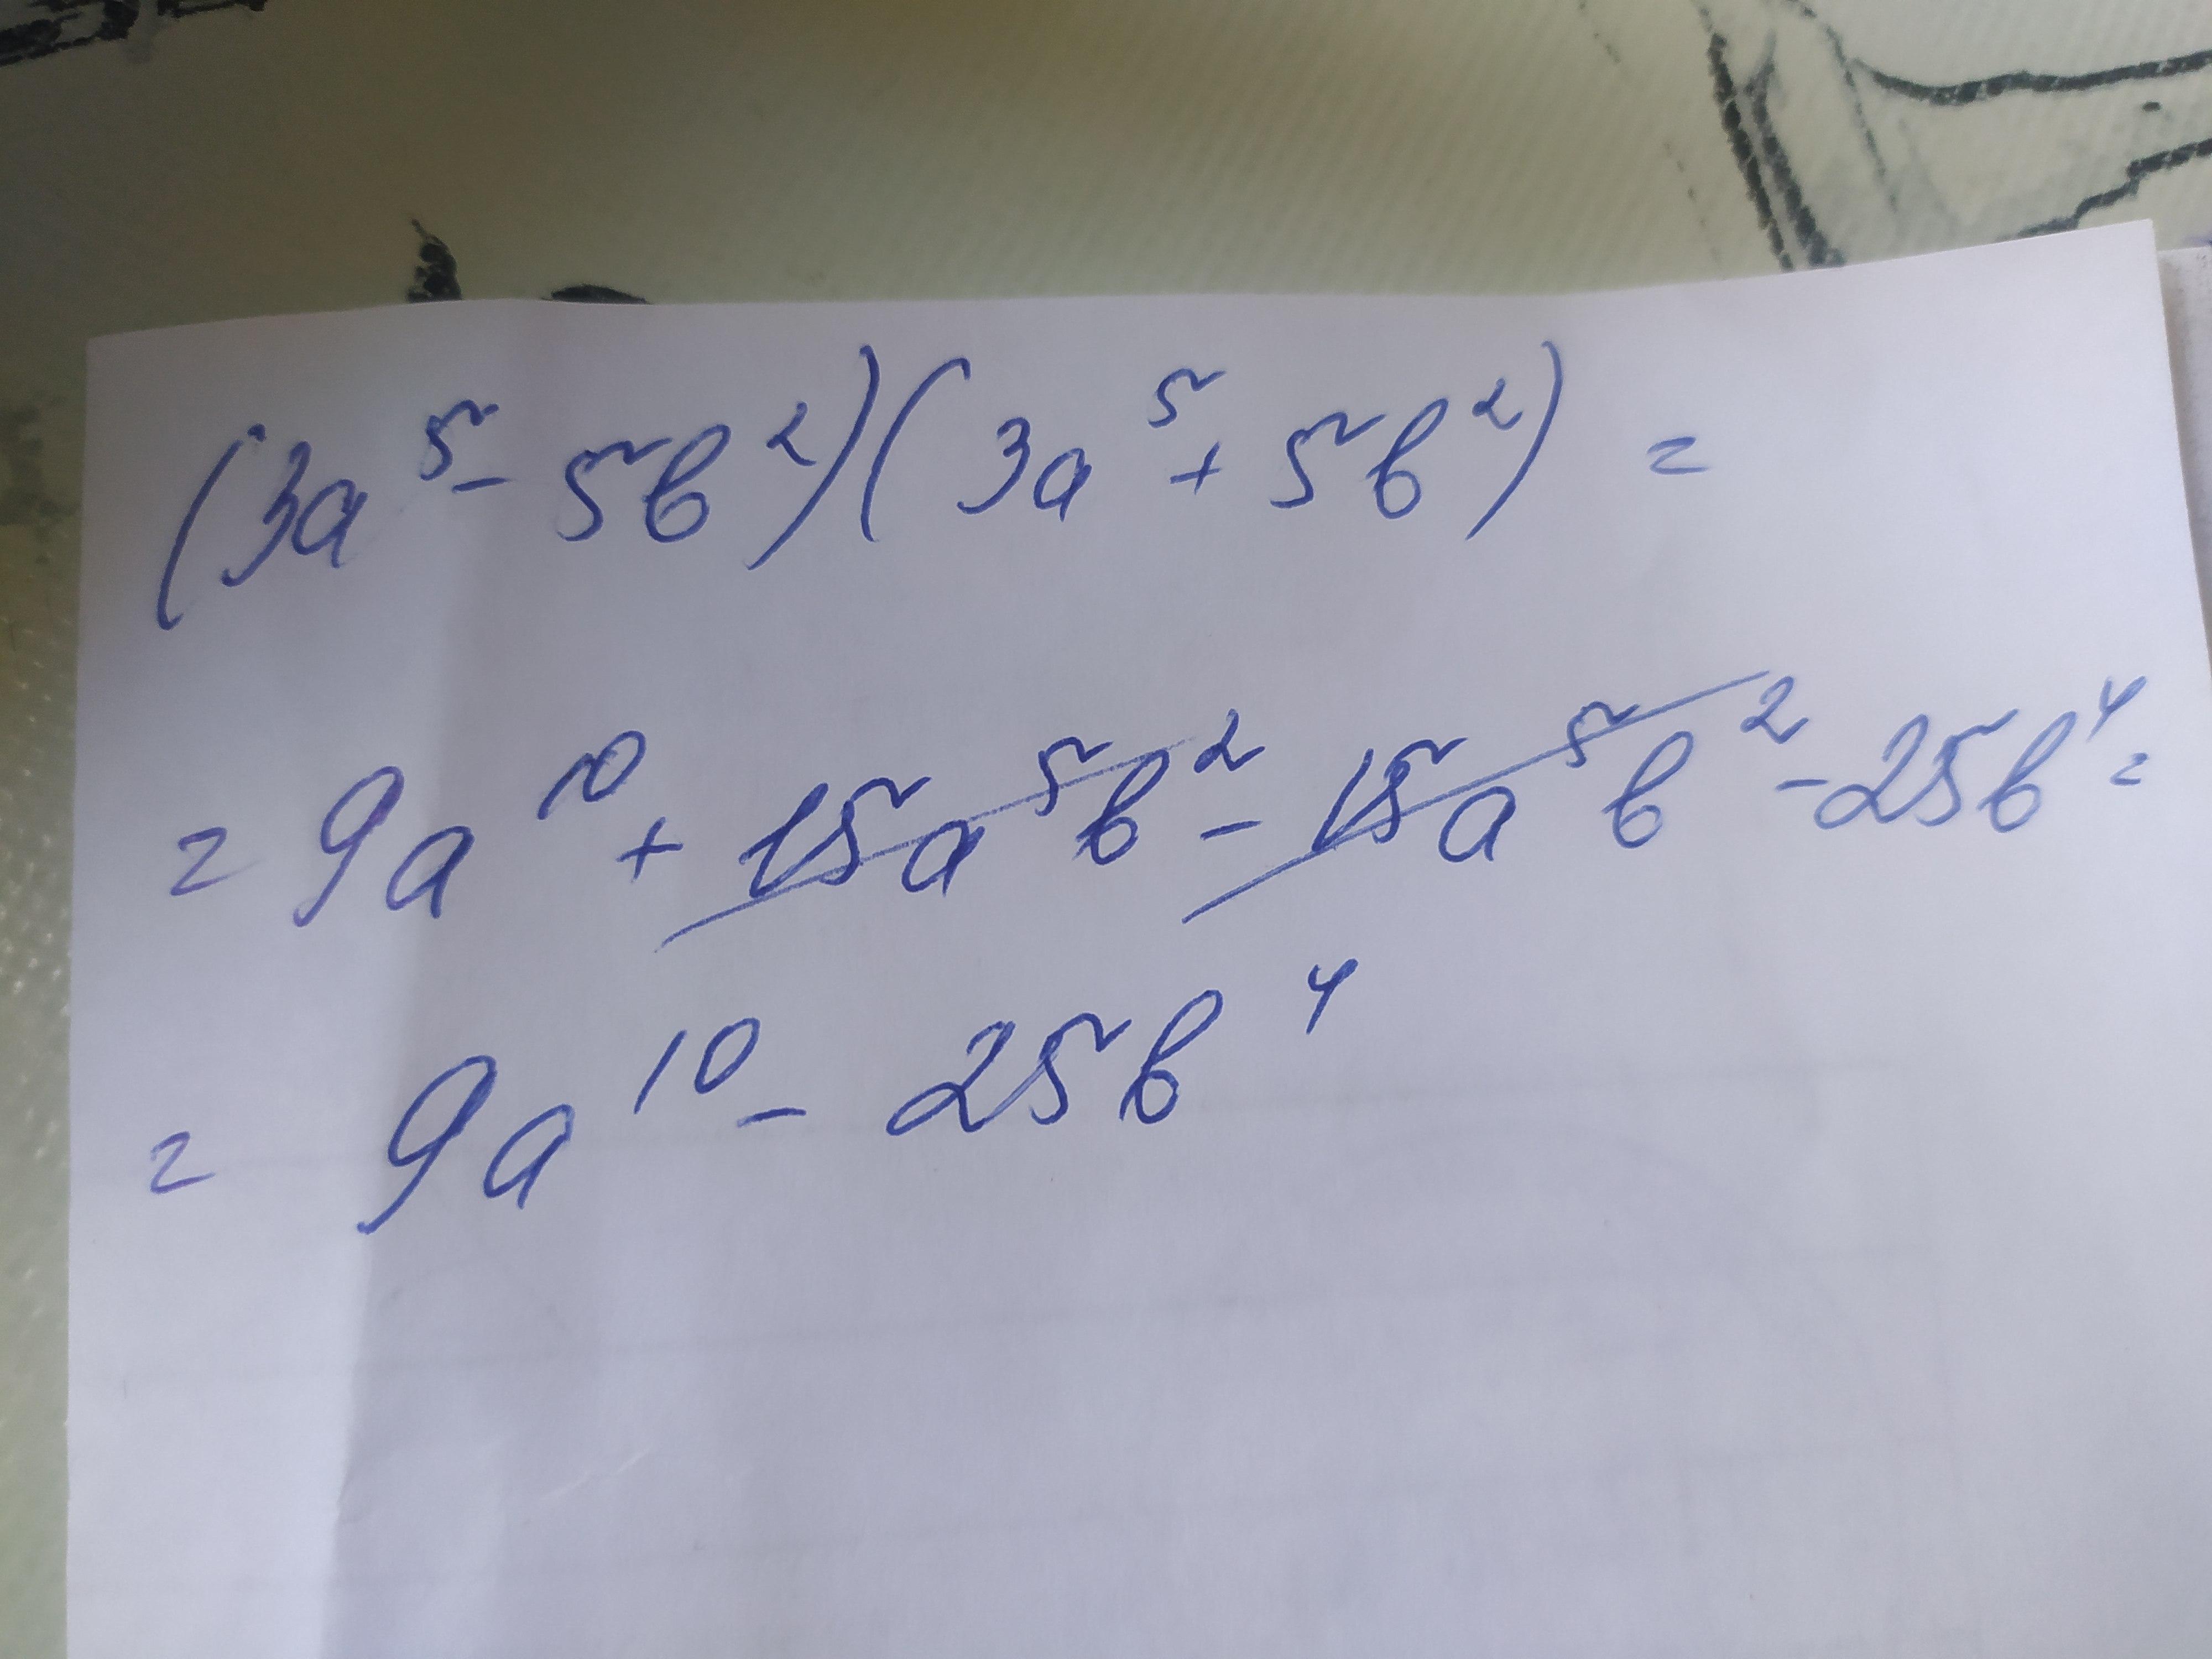 (3a⁵ - 5b²)(3a⁵ + 5b²) =
= 9a¹⁰ + 15a⁵b² - 15a⁵b² - 25b⁴ =
= 9a¹⁰ - 25b⁴